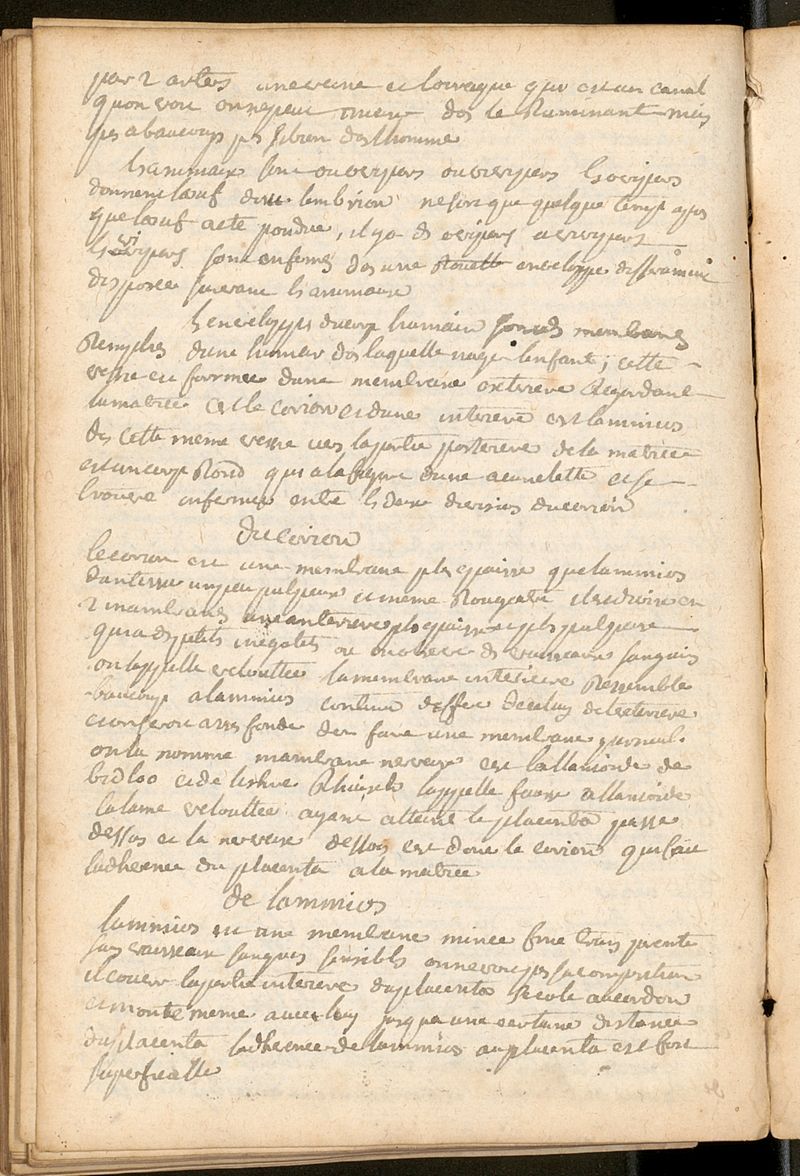 par 2 arters une veine et louraque qui est un canal
quon voit on ne peut mieux dãs le Ruminant mais
pas a baucoup ps si bien dãs lhomme
les animaux sont ovipars ou vivipars les ovipars
donnent lœuf dou lembrion ne sort que quelque temps apres
que lœuf a ete pondue, il y a ds ovipars
ls vivipars sont enfermes dãs une enveloppe differãment
disposee suivant ls animaux
ls enveloppes du corp humain sont ds membranes
Remplies dune humeur dãs laquelle nage lenfant; cette
vessie est formee dune membrane exterieure Regardant
la matrice cest le corion et dune interieure cest lamnios
dãs cette meme vessie vers la partie posterieure de la matrice
est un corp Rond qui a la figure dune et se
trouve enfermee entre ls deux divisions du corion
Du Corion
le corion est une membrane pls epaisse que lamnios
dun tissu un peu pulpeux et meme Rougeatre il se divise en
2 mambranes une anterieure pls epaisse et pls pulpeuse
qui a ds petits inegalites ou ds vaisseaux sanguins
on lappelle veloutee la membrane interieure Ressemble
baucoup a lamnios
assez fondé den faire une membrane
on la nomme mambrane nerveuse cest lallantoide de
bidloo et de lappelle fausse allantoide
la lame veloutee ayant atteint le placenta passe
dessus et la nerveuse dessous cest donc le corion qui fait
ladherence du placenta a la matrice
de lamnios
lamnios est une membrane mince fine transparente
sans vaisseaux sanguins sensibles on ne voit ps sa composition
il couvre la partie interieure du placenta se cole au cordon
et monte meme avec luy jusqua une certaine distance
du placenta ladherence de lamnios au placenta est fort
superficielle